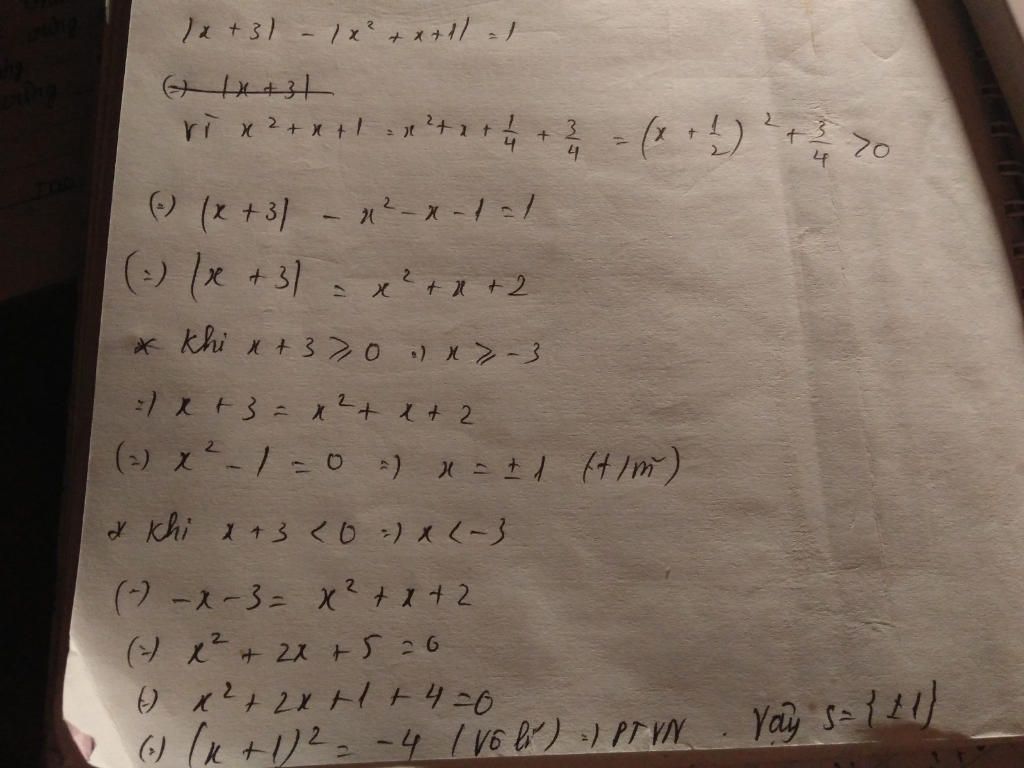 |x + 3| - |x² + x + 1| = 1
(=) |x + 3|
vì x² + x + 1 = x² + x + 1/4 + 3/4 = (x + 1/2)² + 3/4 > 0
(=) |x + 3| - x² - x - 1 = 1
(=) |x + 3| = x² + x + 2
* Khi x + 3 ⩾ 0 =) x ⩾ -3
=) x + 3 = x² + x + 2
(=) x² - 1 = 0 =) x = ± 1 (t/m)
* Khi x + 3 < 0 =) x < -3
(=) -x - 3 = x² + x + 2
(=) x² + 2x + 5 = 0
(=) x² + 2x + 1 + 4 = 0
(=) (x + 1)² = -4 (vô lí) =) PTVN. Vậy S = {±1}